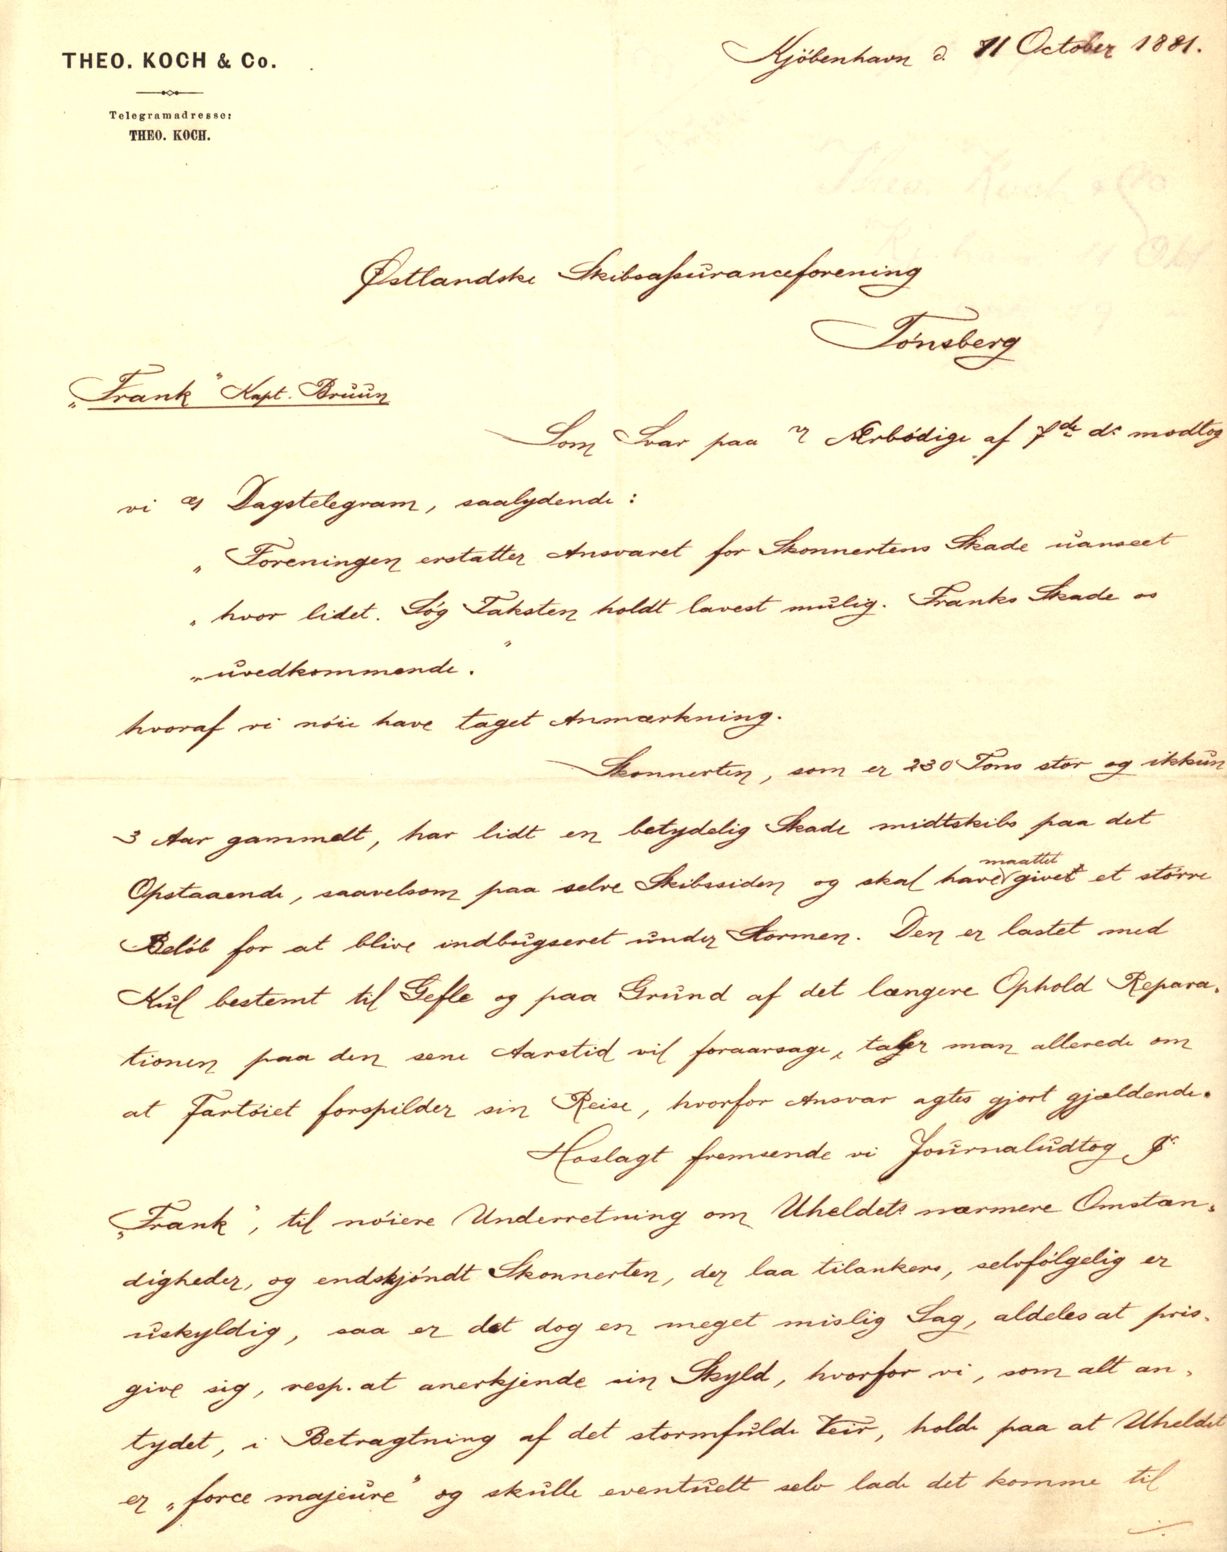 THEO. KOCH & Co.
Telegramadresse:
THEO. KOCH.
Kjöbenhavn d. 11 October 1881.
Østlandske Skibsassuranceforening
Tönsberg
„Frank" Kapt. Bruun
Som Svar paa Ærbödige af 7de ds modtog
vi Dagstelegram, saalydende:
„Foreningen erstatter Ansvaret for Skonnertens Skade uanseet
„hvor lidet. Søg Taksten holdt lavest mulig. Franks Skade os
„uvedkommende."
hvoraf vi nöie have taget Anmærkning.
Skonnerten, som er 230 Tons stor og ikkun
3 Aar gammelt, har lidt en betydelig Skade midtskibs paa det
Opstaaende, saavelsom paa selve Skibssiden og skal have maattet givet et större
Belöb for at blive indbugseret under Stormen. Den er lastet med
Kul bestemt til Gefle og paa Grund af det længere Ophold Repara-
tionen paa den sene Aarstid vil foraarsage, taler man allerede om
at Fartöiet forspilder sin Reise, hvorfor Ansvar agtes gjort gjældende.
Hoslagt fremsende vi Journaludtog pr
„Frank", til nöiere Underretning om Uheldets nærmere Omstæn-
digheder, og endskjöndt Skonnerten, der laa tilankers, selvfölgelig er
uskyldig, saa er det dog en meget mislig Sag, aldeles at pris-
give sig, resp. at anerkjende sin Skyld, hvorfor vi, som alt an-
tydet, i Betragtning af det stormfulde Veir, holde paa at Uheldet
er „force majeure" og skulle eventuelt selv lade det komme til